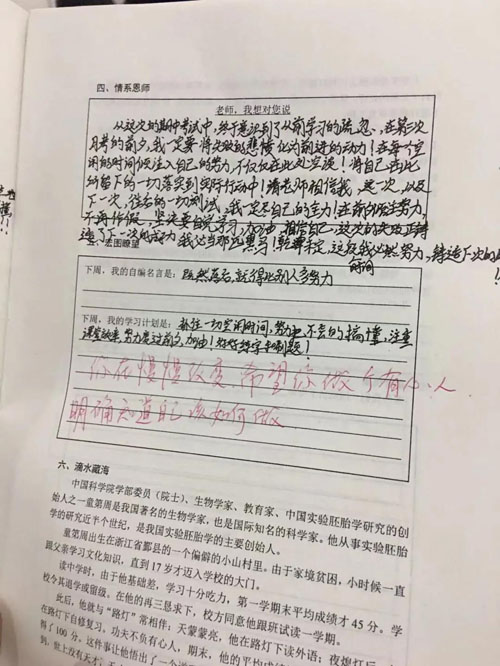 四、情系恩师
老师，我想对您说
从这次的期中考试中，终于意识到了从前学习的疏忽，在第三次
月考的前夕，我一定要将失败的悲愤化为前进的动力！在每个空
闲的时间投注入自己的努力，不仅仅在此处实现！将自己在此
所留下的一切落实到实际行动中！请老师相信我，这一次，以及
下一次，往后的一切测试，我一定尽自己的全力！在前夕努力，
不再作假，坚决要自觉学习，加油，相信自己，这次的失败正铸
造下一次的成功 我必当那匹黑马！乾坤未定，这段时间我必然努力，铸造下一次的
五、宏图瞭望
下周，我的自编名言是：既然落后，就得比别人多努力
下周，我的学习计划是：抓住一切空闲时间，努力把不会的搞懂，注意
课堂效率，努力度过前夕，加油！好好练字和刷题！
你在慢慢改变，希望你做个有心人
明确知道自己该如何做
六、滴水藏海
中国科学院学部委员（院士）、生物学家、教育家、中国实验胚胎学研究的创
始人之一童第周是我国著名的生物学家，也是国际知名的科学家。他从事实验胚胎
学的研究近半个世纪，是我国实验胚胎学的主要创始人。
童第周出生在浙江省鄞县的一个偏僻的小山村里。由于家境贫困，小时候一直
跟父亲学习文化知识，直到 17 岁才迈入学校的大门。
读中学时，由于他基础差，学习十分吃力，第一学期末平均成绩才 45 分。学
校令其退学或留级。在他的再三恳求下，校方同意他跟班试读一学期。
此后，他就与“路灯”常相伴：天蒙蒙亮，他在路灯下读外语；夜熄灯后，
在路灯下自修复习。功夫不负有心人，期末，他的平均成绩
得了 100 分。这件事让他悟出了一个道